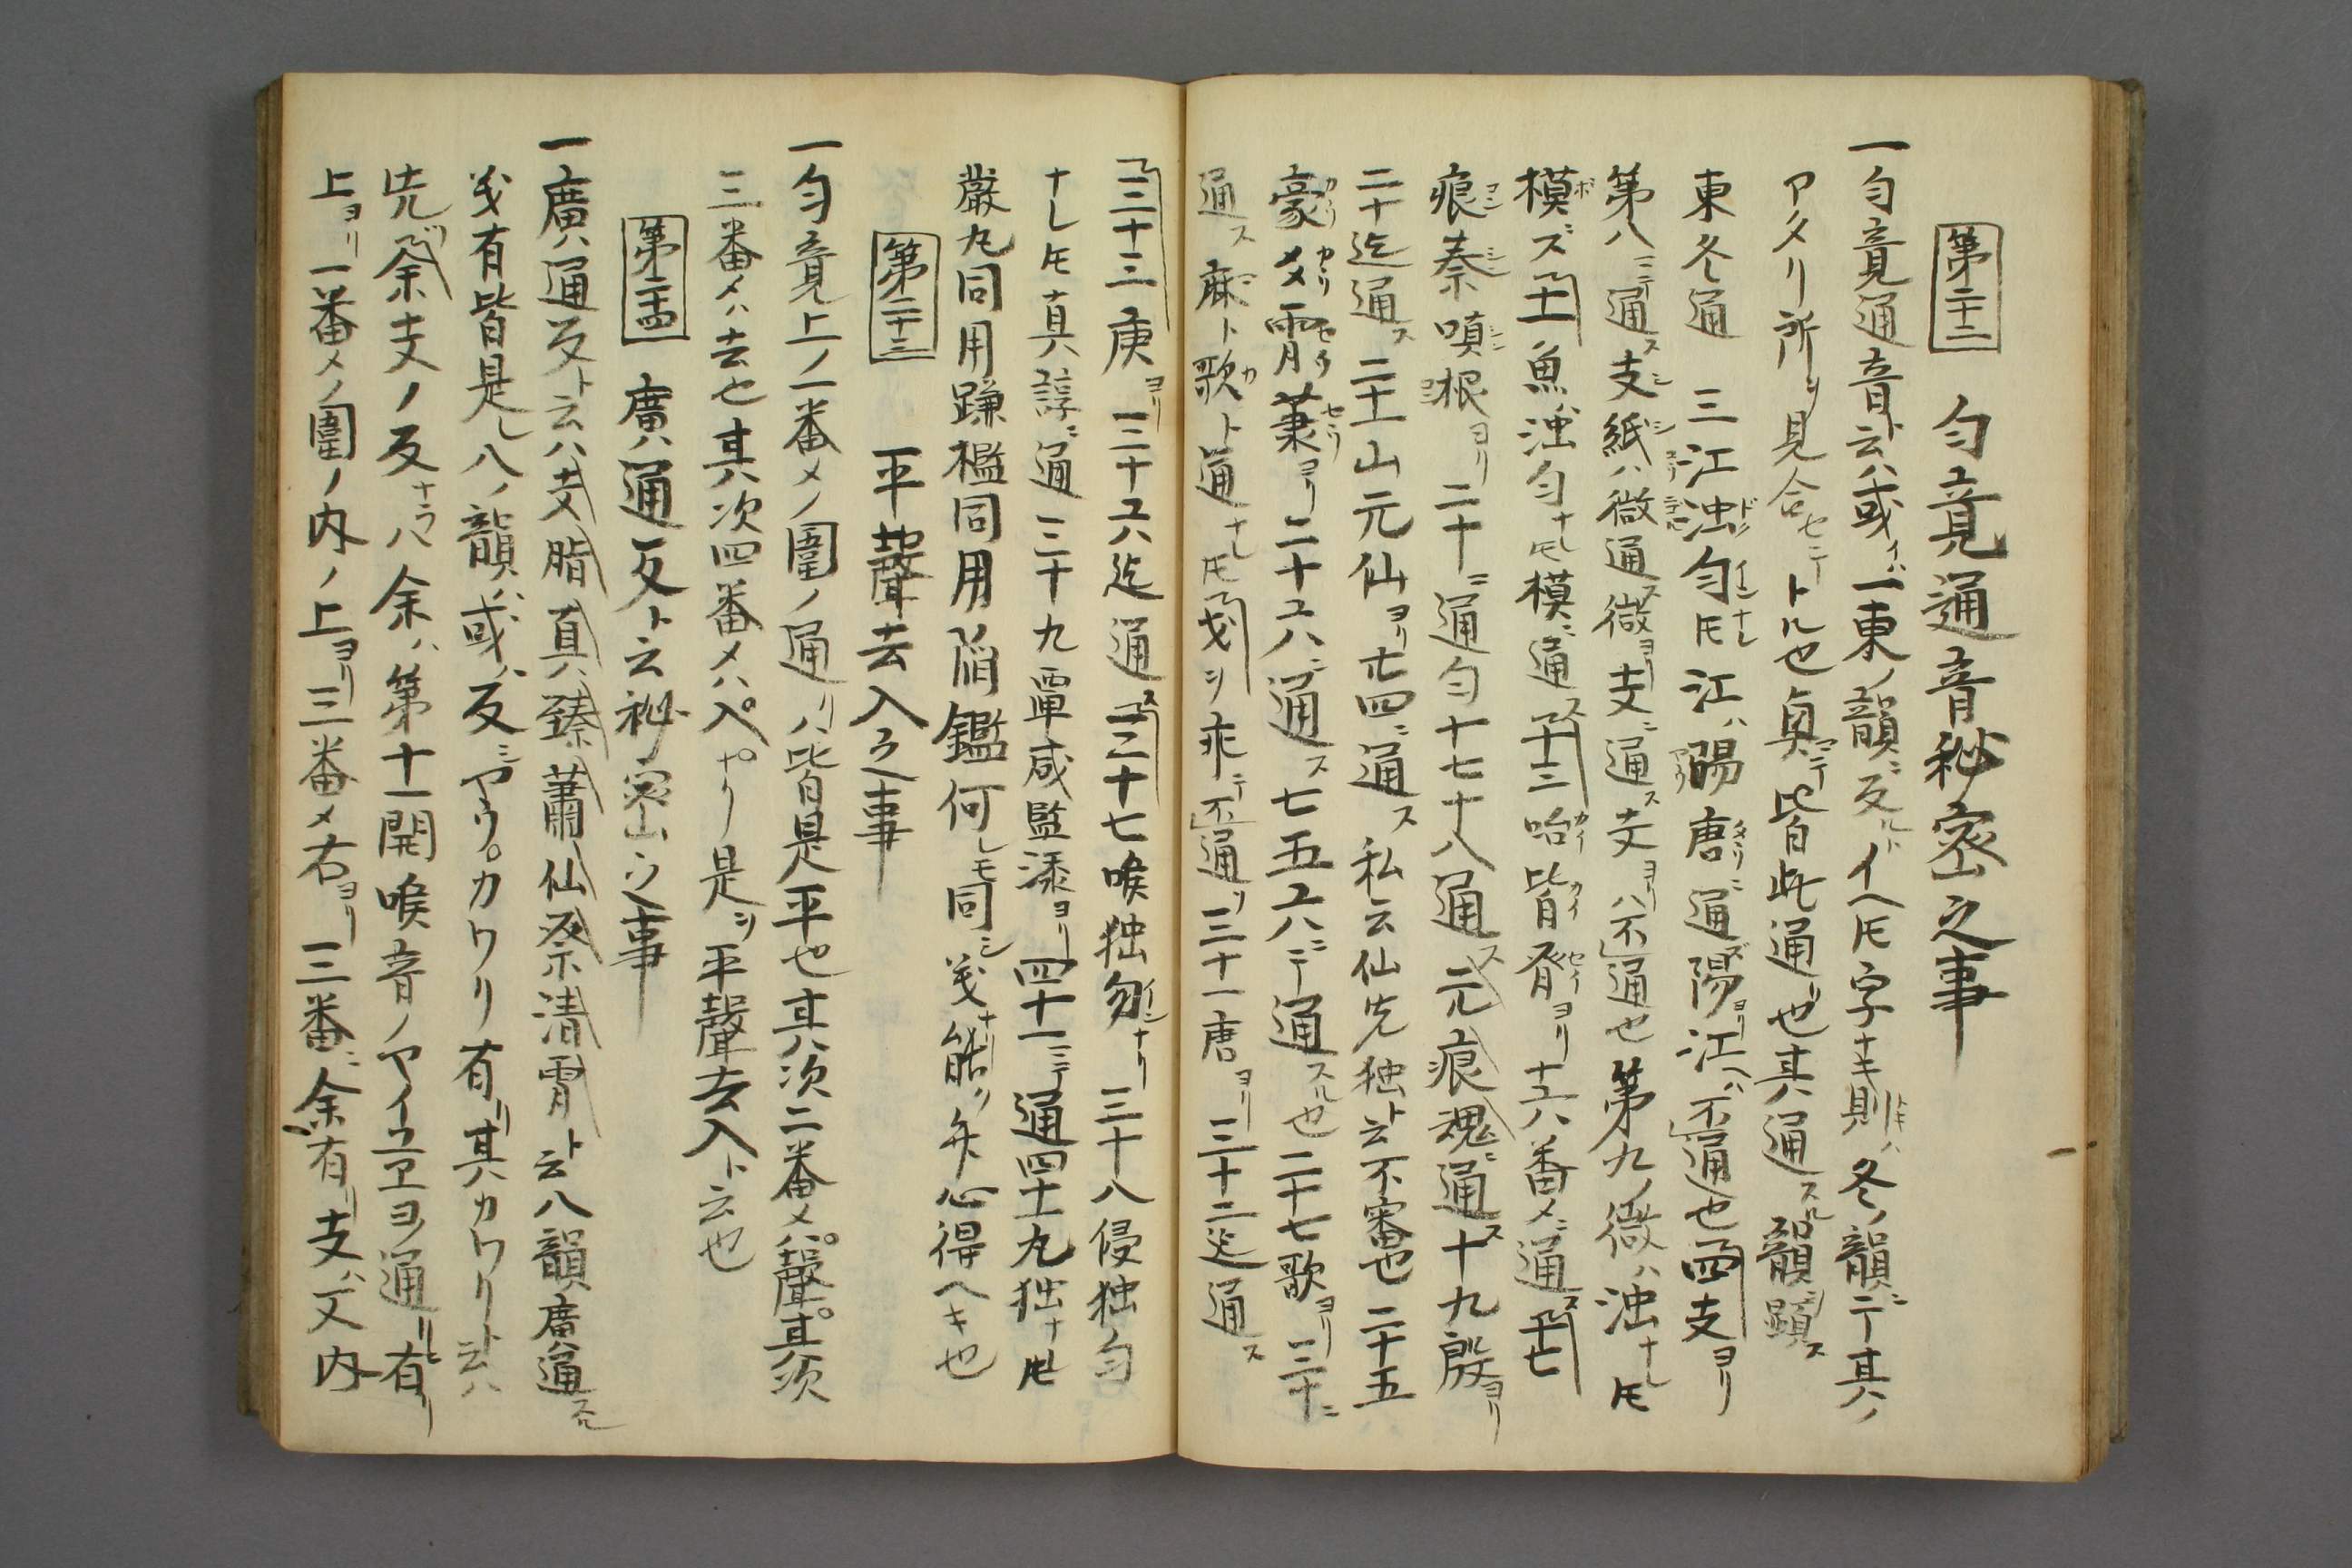 第二十二 匀竟通音秘密之事
一匀竟通音ト云ハ或ハ一東ノ韻ニ反ルトイヘ𪜈字ナキ則ハ冬ノ韻ニテ其ノ
アタリ所ヲ見合セテトル也奥マテ皆此通也其通スル韻顕ス
東冬通 三江浊匀ナレ𪜈江ハ陽唐ニ通ズ陽ヨリ江ヘハ不通也四支ヨリ
第八ニテ通ス支紙ハ微通ス微ヨリ支ニ通ス支ヨリハ不通也第九ノ微ハ浊ナレ𪜈
模ズ十一魚浊匀ナレ𪜈模ニ通ス十二咍皆㳙ヨリ十六番メニ通ス十七
痕臻嗔根ヨリ二十ニ通匀十七十八通ス元痕魂ニ通ス十九殷ヨリ
二十迄通ス二十一山元仙ヨリ廿四ニ通ス私云仙先独ト云不審也二十五
豪爻霄蕭ヨリ二十六ニ通ス七五六ニテ通スル也二十七歌ヨリ三十ニ
通ス麻ト歌ト通ナレ𪜈戈ヲ乖テ不通リ三十一唐ヨリ三十二迄通ス
三十三庚ヨリ三十六迄通ス三十七喉独匀ナリ三十八侵独匀
ナレ𪜈真諄ニ通三十九覃咸監添ヨリ四十一ニテ通四十九独ナレ𪜈
嚴凡同用謙檻同用陥鑑何レモ同シ義ナリ能ク弁心得ヘキ也
第二十三 平聲去入之事
一匀竟上ノ一番メノ圍ノ通リハ皆是平也其次二番メハ聲其次
三番メハ去也其次四番メハ入ナリ是ヲ平聲去入ト云也
第二十四 廣通反ト云秘密之事
一廣通反ト云ハ支脂真臻蕭仙祭清霄ト云八韻廣通スル
義有皆是レ八ノ韻ハ或ハ反ニヤウカワリ有リ其カワリト云ハ
先余支ノ反ナラハ余ハ第十一開喉音ノヤイユヱヨノ通リニ有リ
上ヨリ一番メノ圍ノ内ノ上ヨリ三番メ右ヨリ三番ニ余有リ支ハ又内